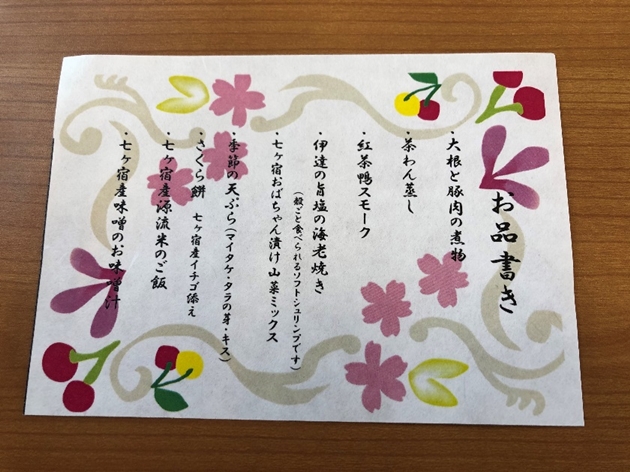 お品書き
・大根と豚肉の煮物
・茶わん蒸し
・紅茶鴨スモーク
・伊達の旨塩の海老焼き
(殻ごと食べられるソフトシュリンプです)
・七ヶ宿おばちゃん漬け 山菜ミックス
・季節の天ぷら(マイタケ・タラの芽・キス)
・さくら餅 七ヶ宿産イチゴ添え
・七ヶ宿産源流米のご飯
・七ヶ宿産味噌のお味噌汁